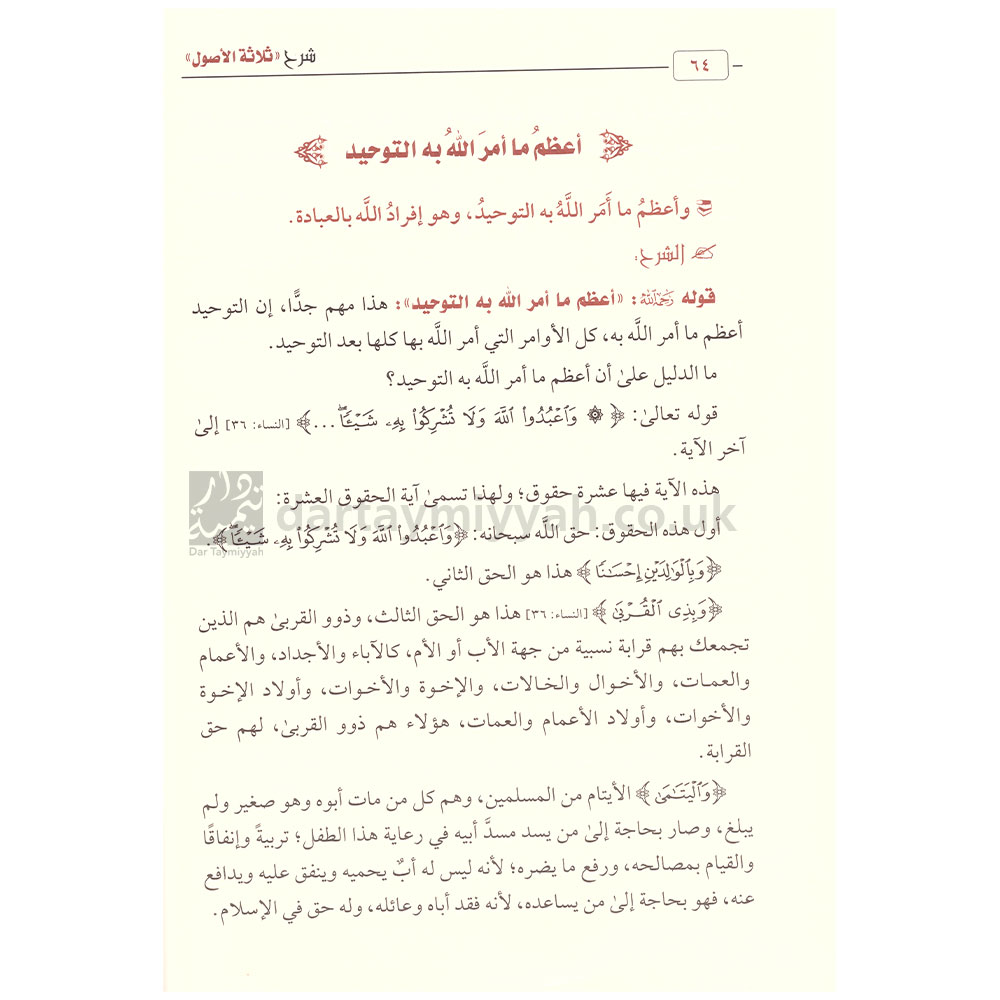 ٦٤
شرح «ثلاثة الأصول»
أعظمُ ما أمرَ اللهُ به التوحيد
وأعظمُ ما أَمَر اللَّهُ به التوحيدُ، وهو إفرادُ اللَّه بالعبادة.
الشرح:
قوله رَحِمَهُ اللَّهُ: «أعظم ما أمر الله به التوحيد»: هذا مهم جدًّا، إن التوحيد
أعظم ما أمر اللَّه به، كل الأوامر التي أمر اللَّه بها كلها بعد التوحيد.
ما الدليل علىٰ أن أعظم ما أمر اللَّه به التوحيد؟
قوله تعالىٰ: ﴿۞ وَٱعۡبُدُواْ ٱللَّهَ وَلَا تُشۡرِكُواْ بِهِۦ شَيۡـٔٗاۖ ...﴾ [النساء: ٣٦] إلىٰ
آخر الآية.
هذه الآية فيها عشرة حقوق؛ ولهذا تسمىٰ آية الحقوق العشرة:
أول هذه الحقوق: حق اللَّه سبحانه: ﴿وَٱعۡبُدُواْ ٱللَّهَ وَلَا تُشۡرِكُواْ بِهِۦ شَيۡـٔٗاۖ﴾.
﴿وَبِٱلۡوَٰلِدَيۡنِ إِحۡسَٰنٗا﴾ هذا هو الحق الثاني.
﴿وَبِذِي ٱلۡقُرۡبَىٰ﴾ [النساء: ٣٦] هذا هو الحق الثالث، وذوو القربىٰ هم الذين
تجمعك بهم قرابة نسبية من جهة الأب أو الأم، كالآباء والأجداد، والأعمام
والعمات، والأخوال والخالات، والإخوة والأخوات، وأولاد الإخوة
والأخوات، وأولاد الأعمام والعمات، هؤلاء هم ذوو القربىٰ، لهم حق
القرابة.
﴿وَٱلۡيَتَٰمَىٰ﴾ الأيتام من المسلمين، وهم كل من مات أبوه وهو صغير ولم
يبلغ، وصار بحاجة إلىٰ من يسد مسدَّ أبيه في رعاية هذا الطفل؛ تربيةً وإنفاقًا
والقيام بمصالحه، ورفع ما يضره؛ لأنه ليس له أبٌ يحميه وينفق عليه ويدافع
عنه، فهو بحاجة إلىٰ من يساعده، لأنه فقد أباه وعائله، وله حق في الإسلام.
دار تيمية
Dar Taymiyyah
dartaymiyyah.co.uk